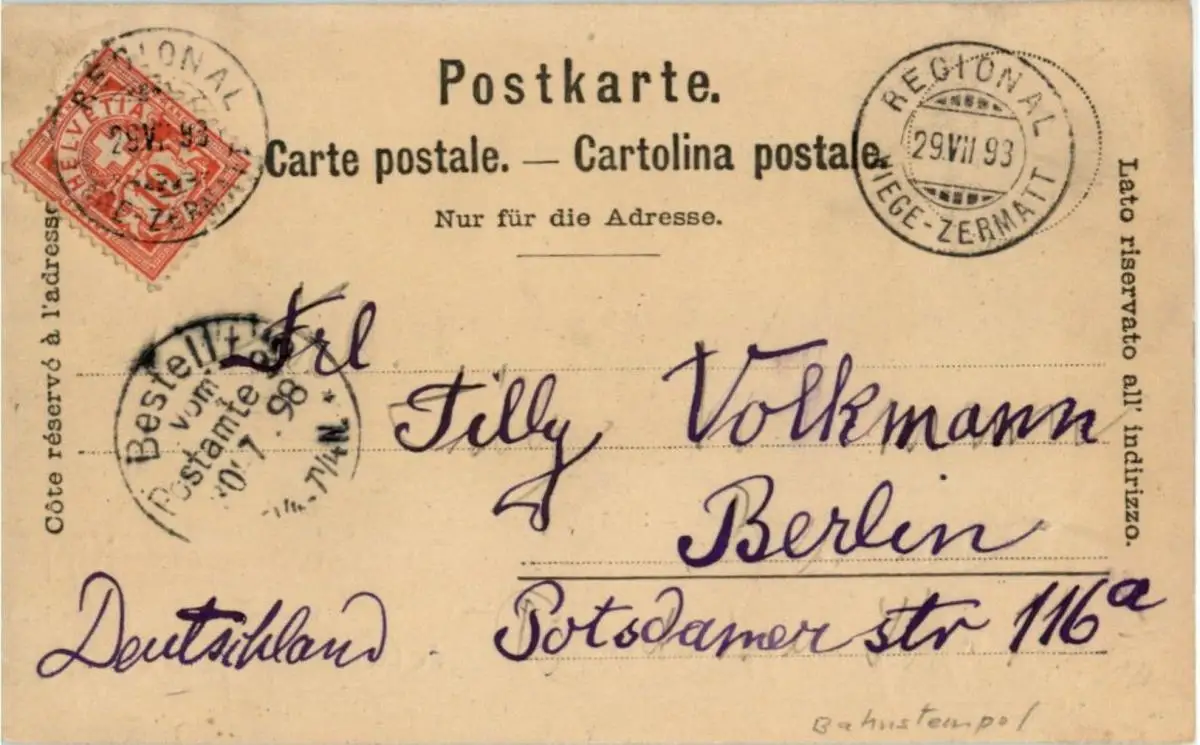 REGIONAL
HELVETIA
10
Postkarte.
Carte postale. — Cartolina postale.
Nur für die Adresse.
REGIONAL
29.VII 93
VIEGE-ZERMATT
Côte réservé à l'adresse
Lato riservato all' indirizzo.
Bestellt
vom
Postamte
7. 98
7¼N.
Frl
Tilly Volkmann
Berlin
Potsdamer str 116a
Deutschland
Bahnstempel